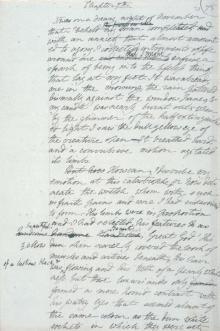 Chapter 7th
It was on a dreary night of November
that I beheld my man completed and
with an anxiety that almost amount
ed to agony I collected instruments of life
around me
spark of being into the thing
that lay at my feet. It was already
one in the morning, the rain pattered
dismally against the window panes &
my candle was nearly burnt out when
by the glimmer of the half extinguish
ed light I saw the dull yellow eye of
the creature open. It breathed hard
and a convulsive motion agitated
its limbs.
But how how can I describe my
emotion at this catastrophe or how deli
neate the wretch whom with such
infinite pains and care I had endeavoured
to form. His limbs were in proportion
and I had selected his features
handsome Great God! His
skin scarcely covered the work of
muscles and arteries beneath; his hair
of a lustrous black &
flowing and his teeth of a pearly white
ness but these luxuriances only
formed a more horrid contrast with
his watry eyes that seemed almost of
the same colour as the dun white
sockets in which they were set